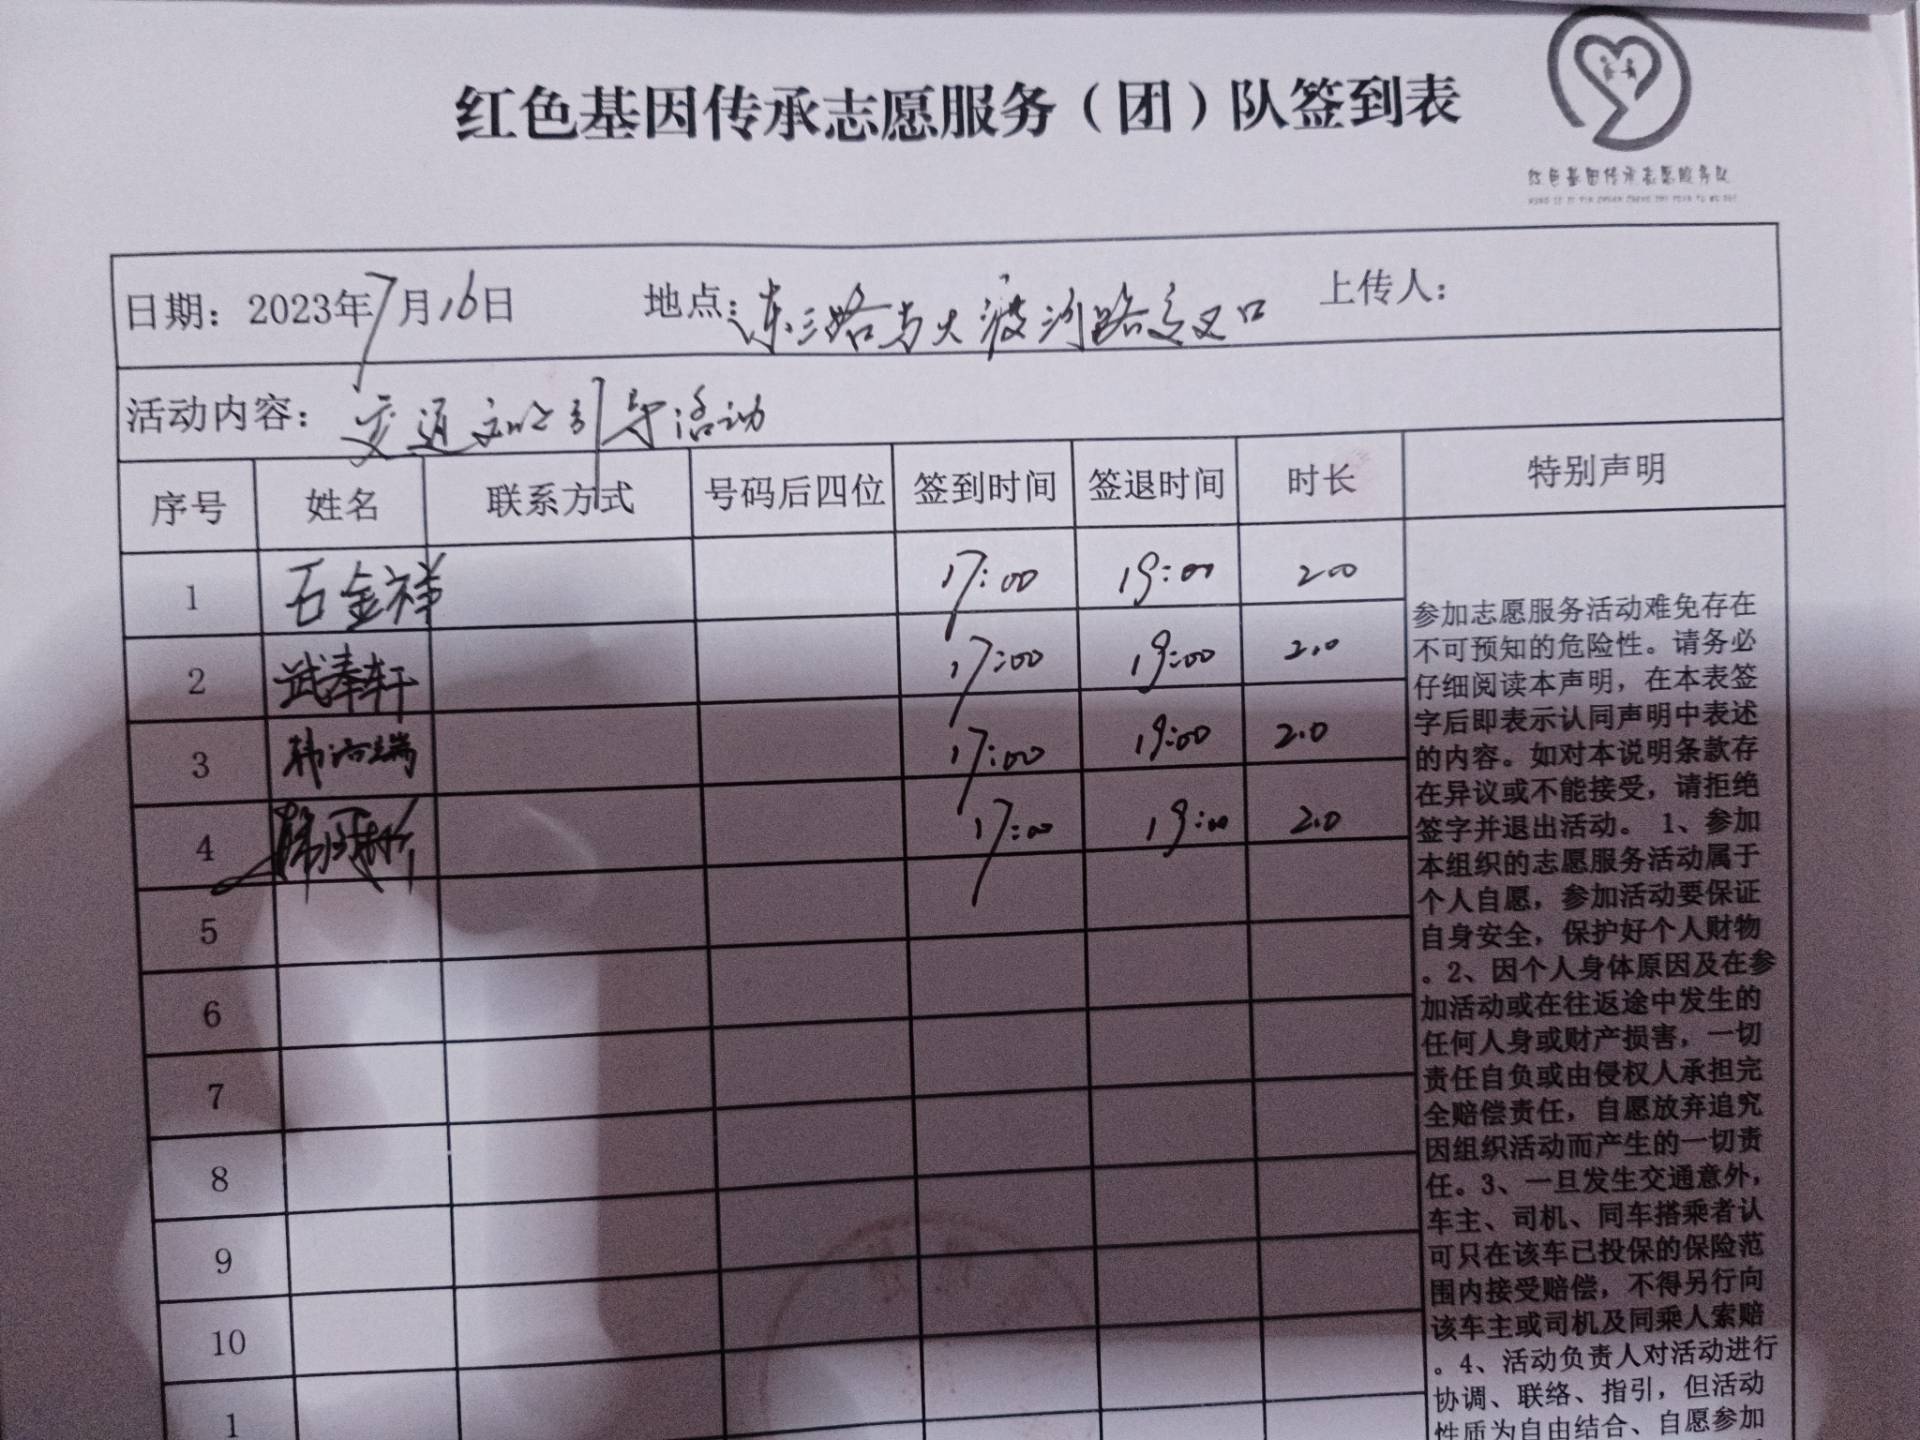 红色基因传承志愿服务（团）队签到表
红色基因传承志愿服务队
日期：2023年7月16日 地点：东三路与大渡河路交叉口 上传人：
活动内容：交通文明引导活动
序号 姓名 联系方式 号码后四位 签到时间 签退时间 时长 特别声明
1 石金祥 17:00 19:00 2.0
2 武奉轩 17:00 19:00 2.0
3 17:00 19:00 2.0
4 17:00 19:00 2.0
5
6
7
8
9
10
1
参加志愿服务活动难免存在
不可预知的危险性。请务必
仔细阅读本声明，在本表签
字后即表示认同声明中表述
的内容。如对本说明条款存
在异议或不能接受，请拒绝
签字并退出活动。 1、参加
本组织的志愿服务活动属于
个人自愿，参加活动要保证
自身安全，保护好个人财物
。2、因个人身体原因及在参
加活动或在往返途中发生的
任何人身或财产损害，一切
责任自负或由侵权人承担完
全赔偿责任，自愿放弃追究
因组织活动而产生的一切责
任。3、一旦发生交通意外，
车主、司机、同车搭乘者认
可只在该车已投保的保险范
围内接受赔偿，不得另行向
该车主或司机及同乘人索赔
。4、活动负责人对活动进行
协调、联络、指引，但活动
性质为自由结合、自愿参加